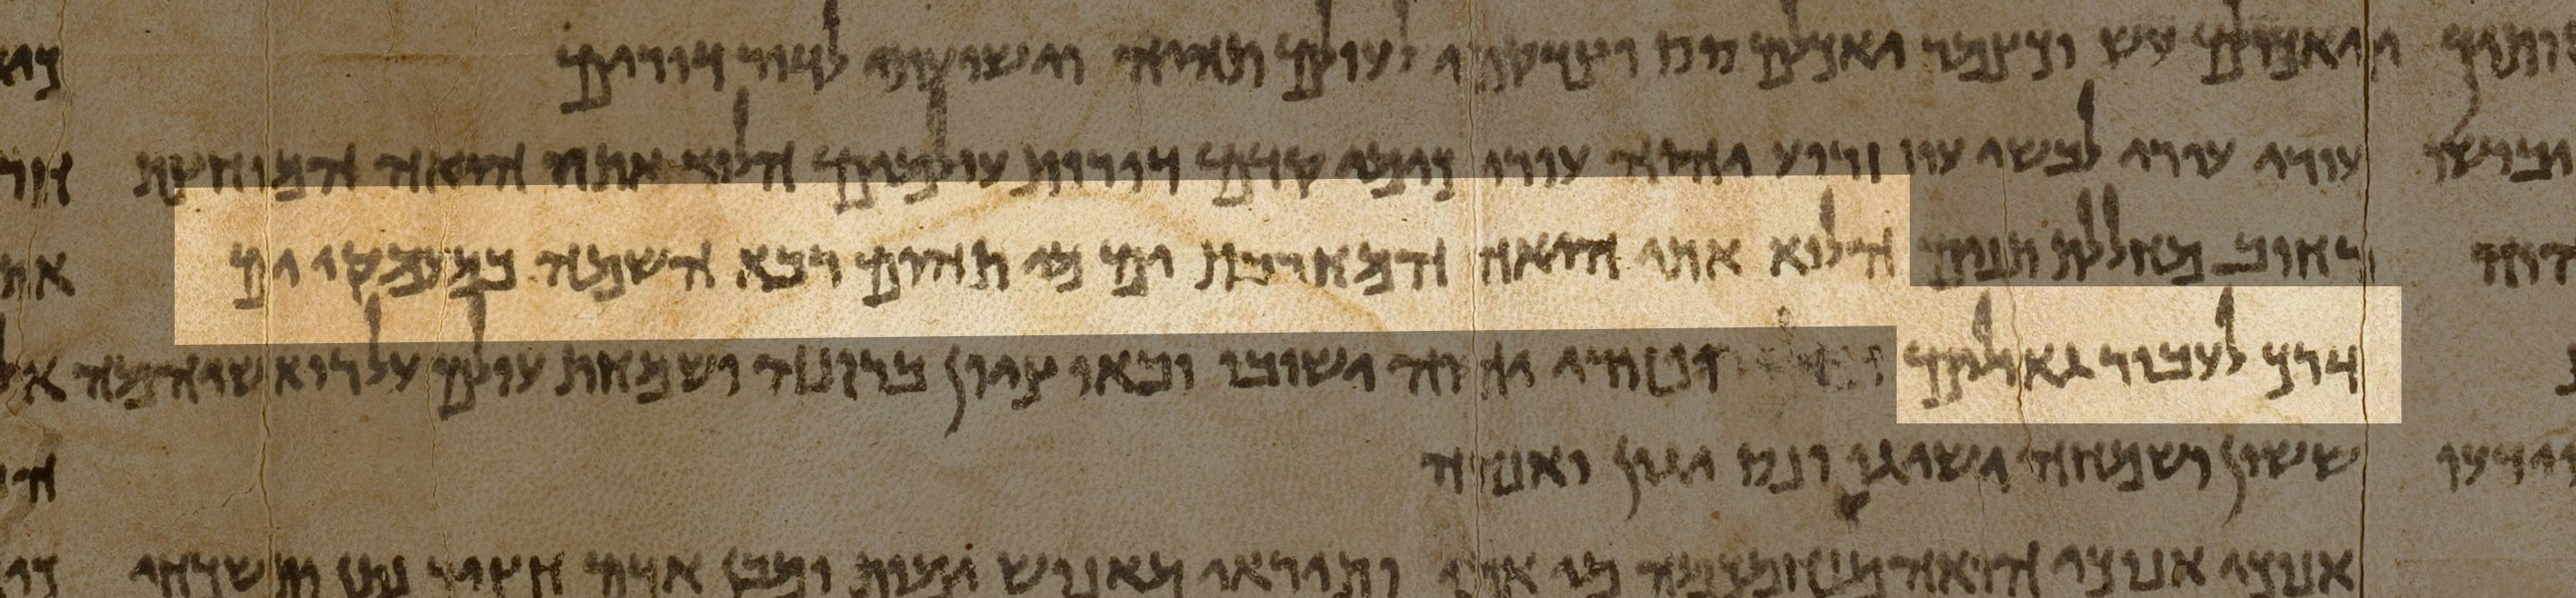 יואכולם עש וכצמר יואכלם סס וצדקתי לעולם תהיה וישועתי לדור דורים
עורי עורי לבשי עוז זרוע יהוה עורי כימי קדם דורות עולמים הלוא אתי היאה המוחצת
רחוב מחללת תנין הלוא אתי היאה המחרבת ים מי תהום רבא השמה במעמקי ים
דרך לעבור גאולים יהוה ישובו ובאו ציון ברנה ושמחת עולם על רואשיהמה
ששון ושמחה ישיגו ונס יגון ואנחה
אנוכי אנוכי היאה מנחמכמה מי את ותיראי מאנוש ימות ומבן אדם חציר נתן ותשכחי